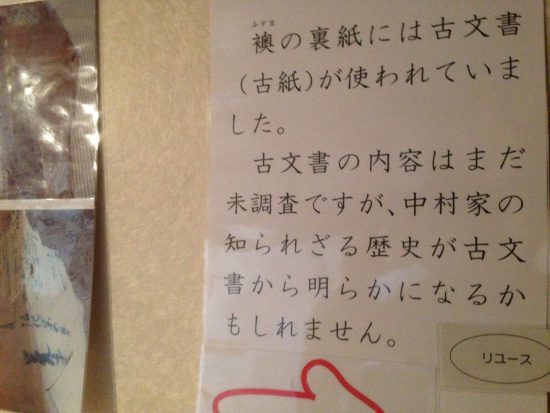 ふすま
襖の裏紙には古文書
(古紙)が使われていま
した。
古文書の内容はまだ
未調査ですが、中村家の
知られざる歴史が古文
書から明らかになるか
もしれません。
リユース